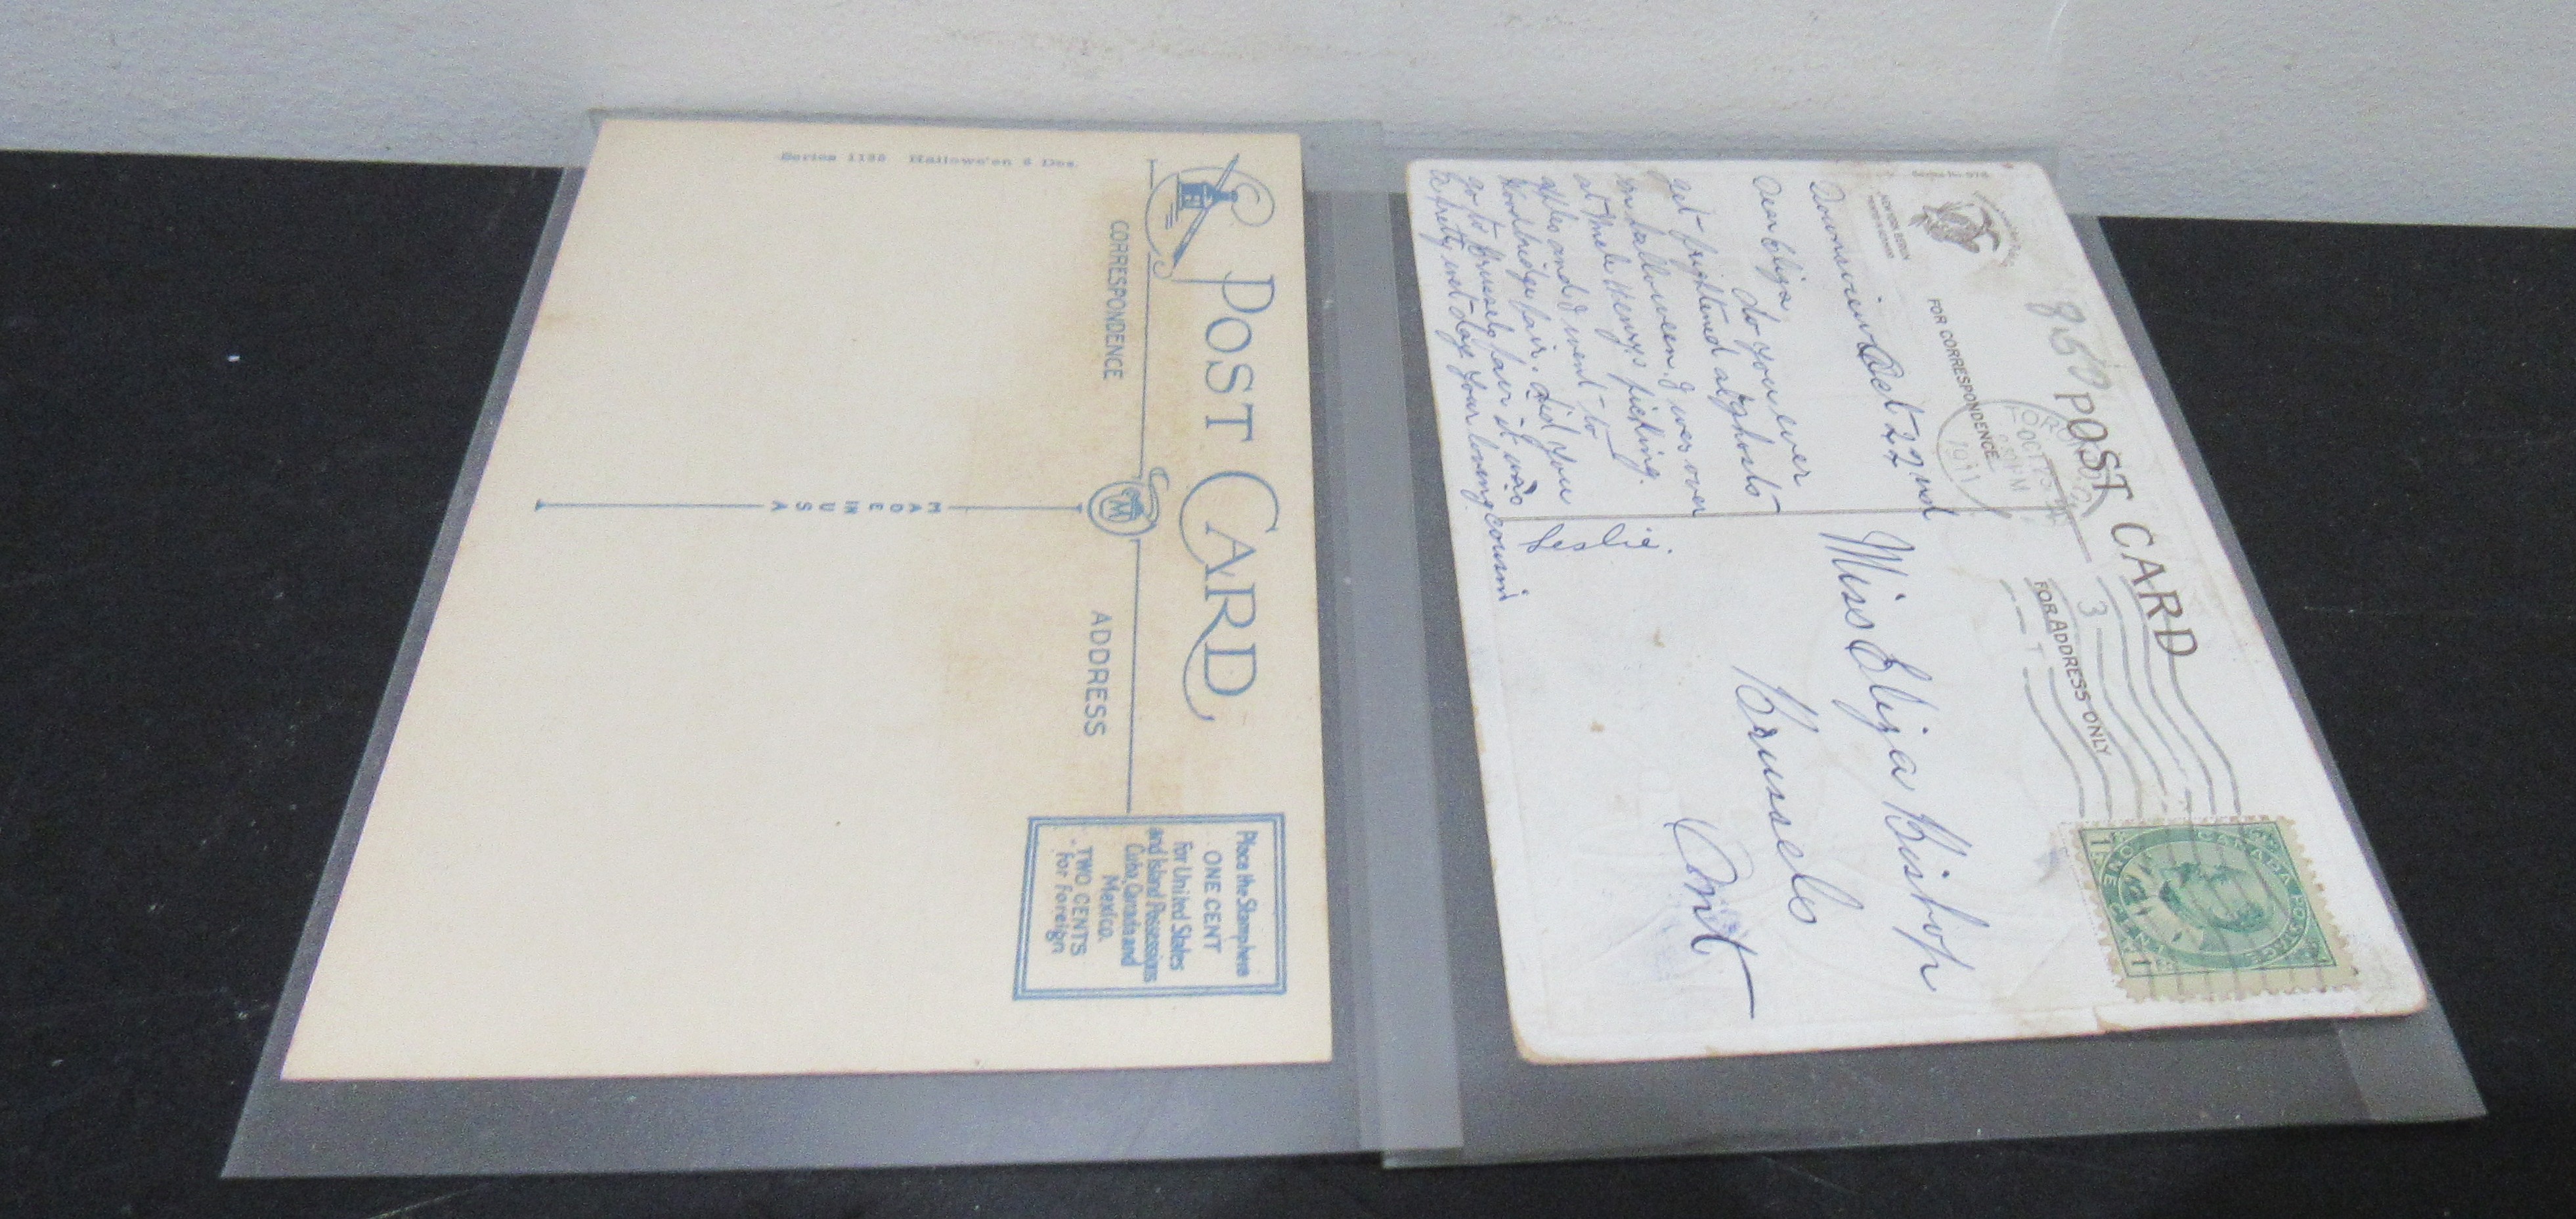 Series 1188 Hallowe'en 6 Des.
POST CARD
CORRESPONDENCE
ADDRESS
M
MADE IN U S A
Place the Stamp here
ONE CENT
for United States
and Island Possessions
Cuba, Canada and
Mexico.
TWO CENTS
for Foreign
850
POST CARD
FOR CORRESPONDENCE
FOR ADDRESS ONLY
OCT
PM
1911
3
CANADA POSTAGE
1 ONE CENT 1
Downsview Oct 22nd
Dear Eliza
do you ever
get frightened at ghosts
on halloween. I was over
at Uncle Henrys picking
apples and I went to
Woodbridge fair. did you
go to brussels fair it was
a pretty wet day your loving cousin
Leslie.
Miss Eliza Bishop
Brussels
Ont